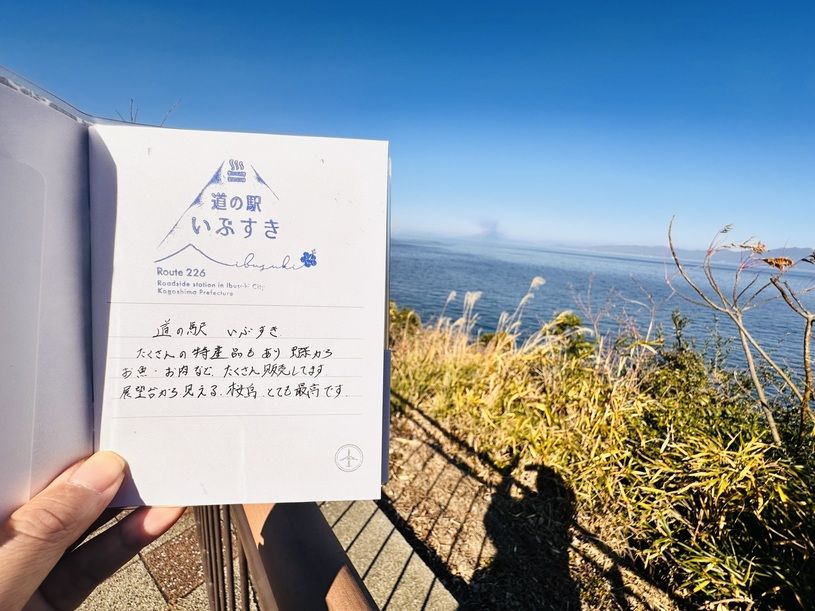 道の駅
いぶすき
ibusuki
Route 226
Roadside station in Ibusuki City,
Kagoshima Prefecture
道の駅 いぶすき
たくさんの特産品もあり 野菜から
お魚・お肉など たくさん販売してます
展望台から見える、桜島 とても最高です。